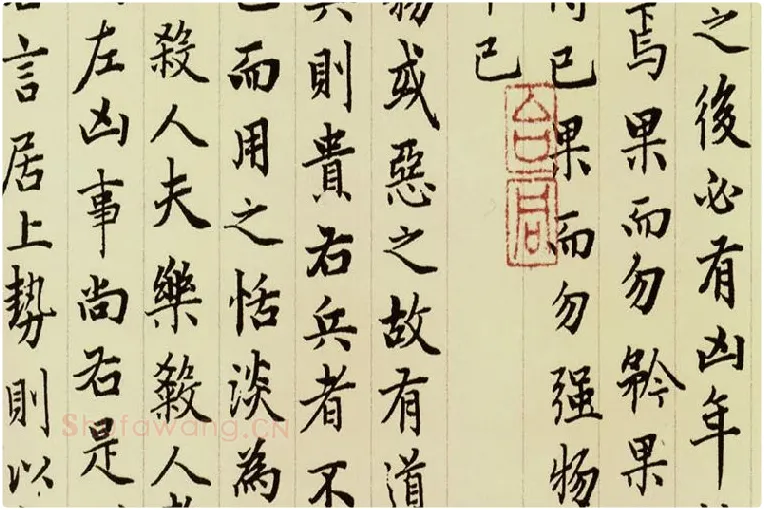 之後必有凶年
焉果而勿矜果
得已果而勿强物
已
物或惡之故有道
兵則貴右兵者不
已而用之恬淡為
殺人夫樂殺人
左凶事尚右是
言居上勢則以
Shufawang.CN